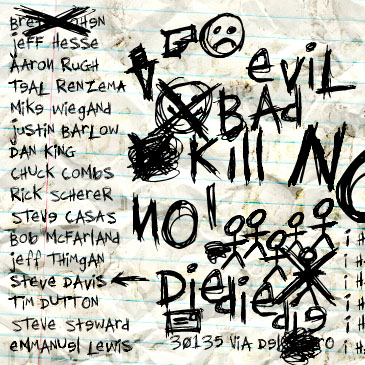 jeff Hesse
Aaron Rugh
Teal Renzema
Mike Wiegand
justin Barlow
Dan King
Chuck Combs
Rick Scherer
Steve Casas
Bob McFarland
jeff Thimgan
Steve Davis
Tim Dutton
Steve Steward
Emmanuel Lewis
evil
BAd
Kill NO
NO!
Die
die
die
30135 Via Del
i H
i H
i H
i H
i H